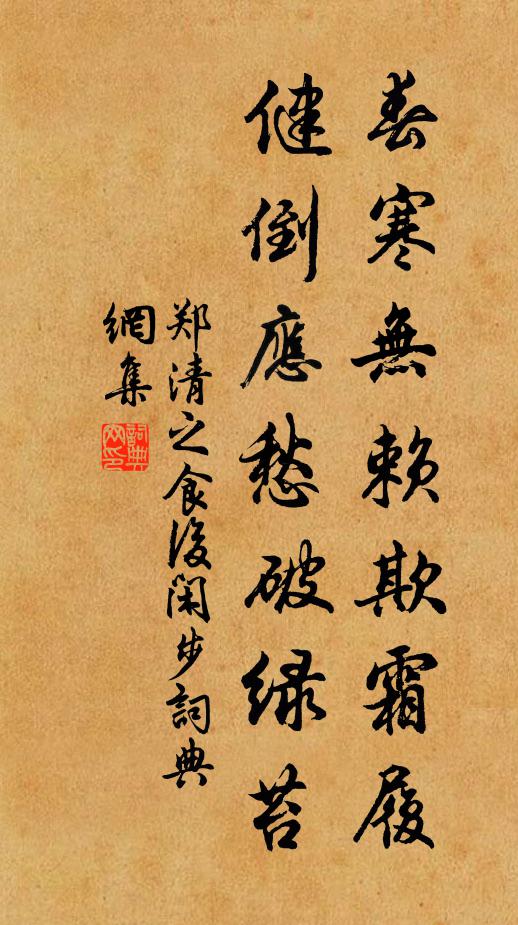 春寒無賴欺霜履
健倒應愁破绿苔
郑清之食後閑步詞典
網集
詞典
网印